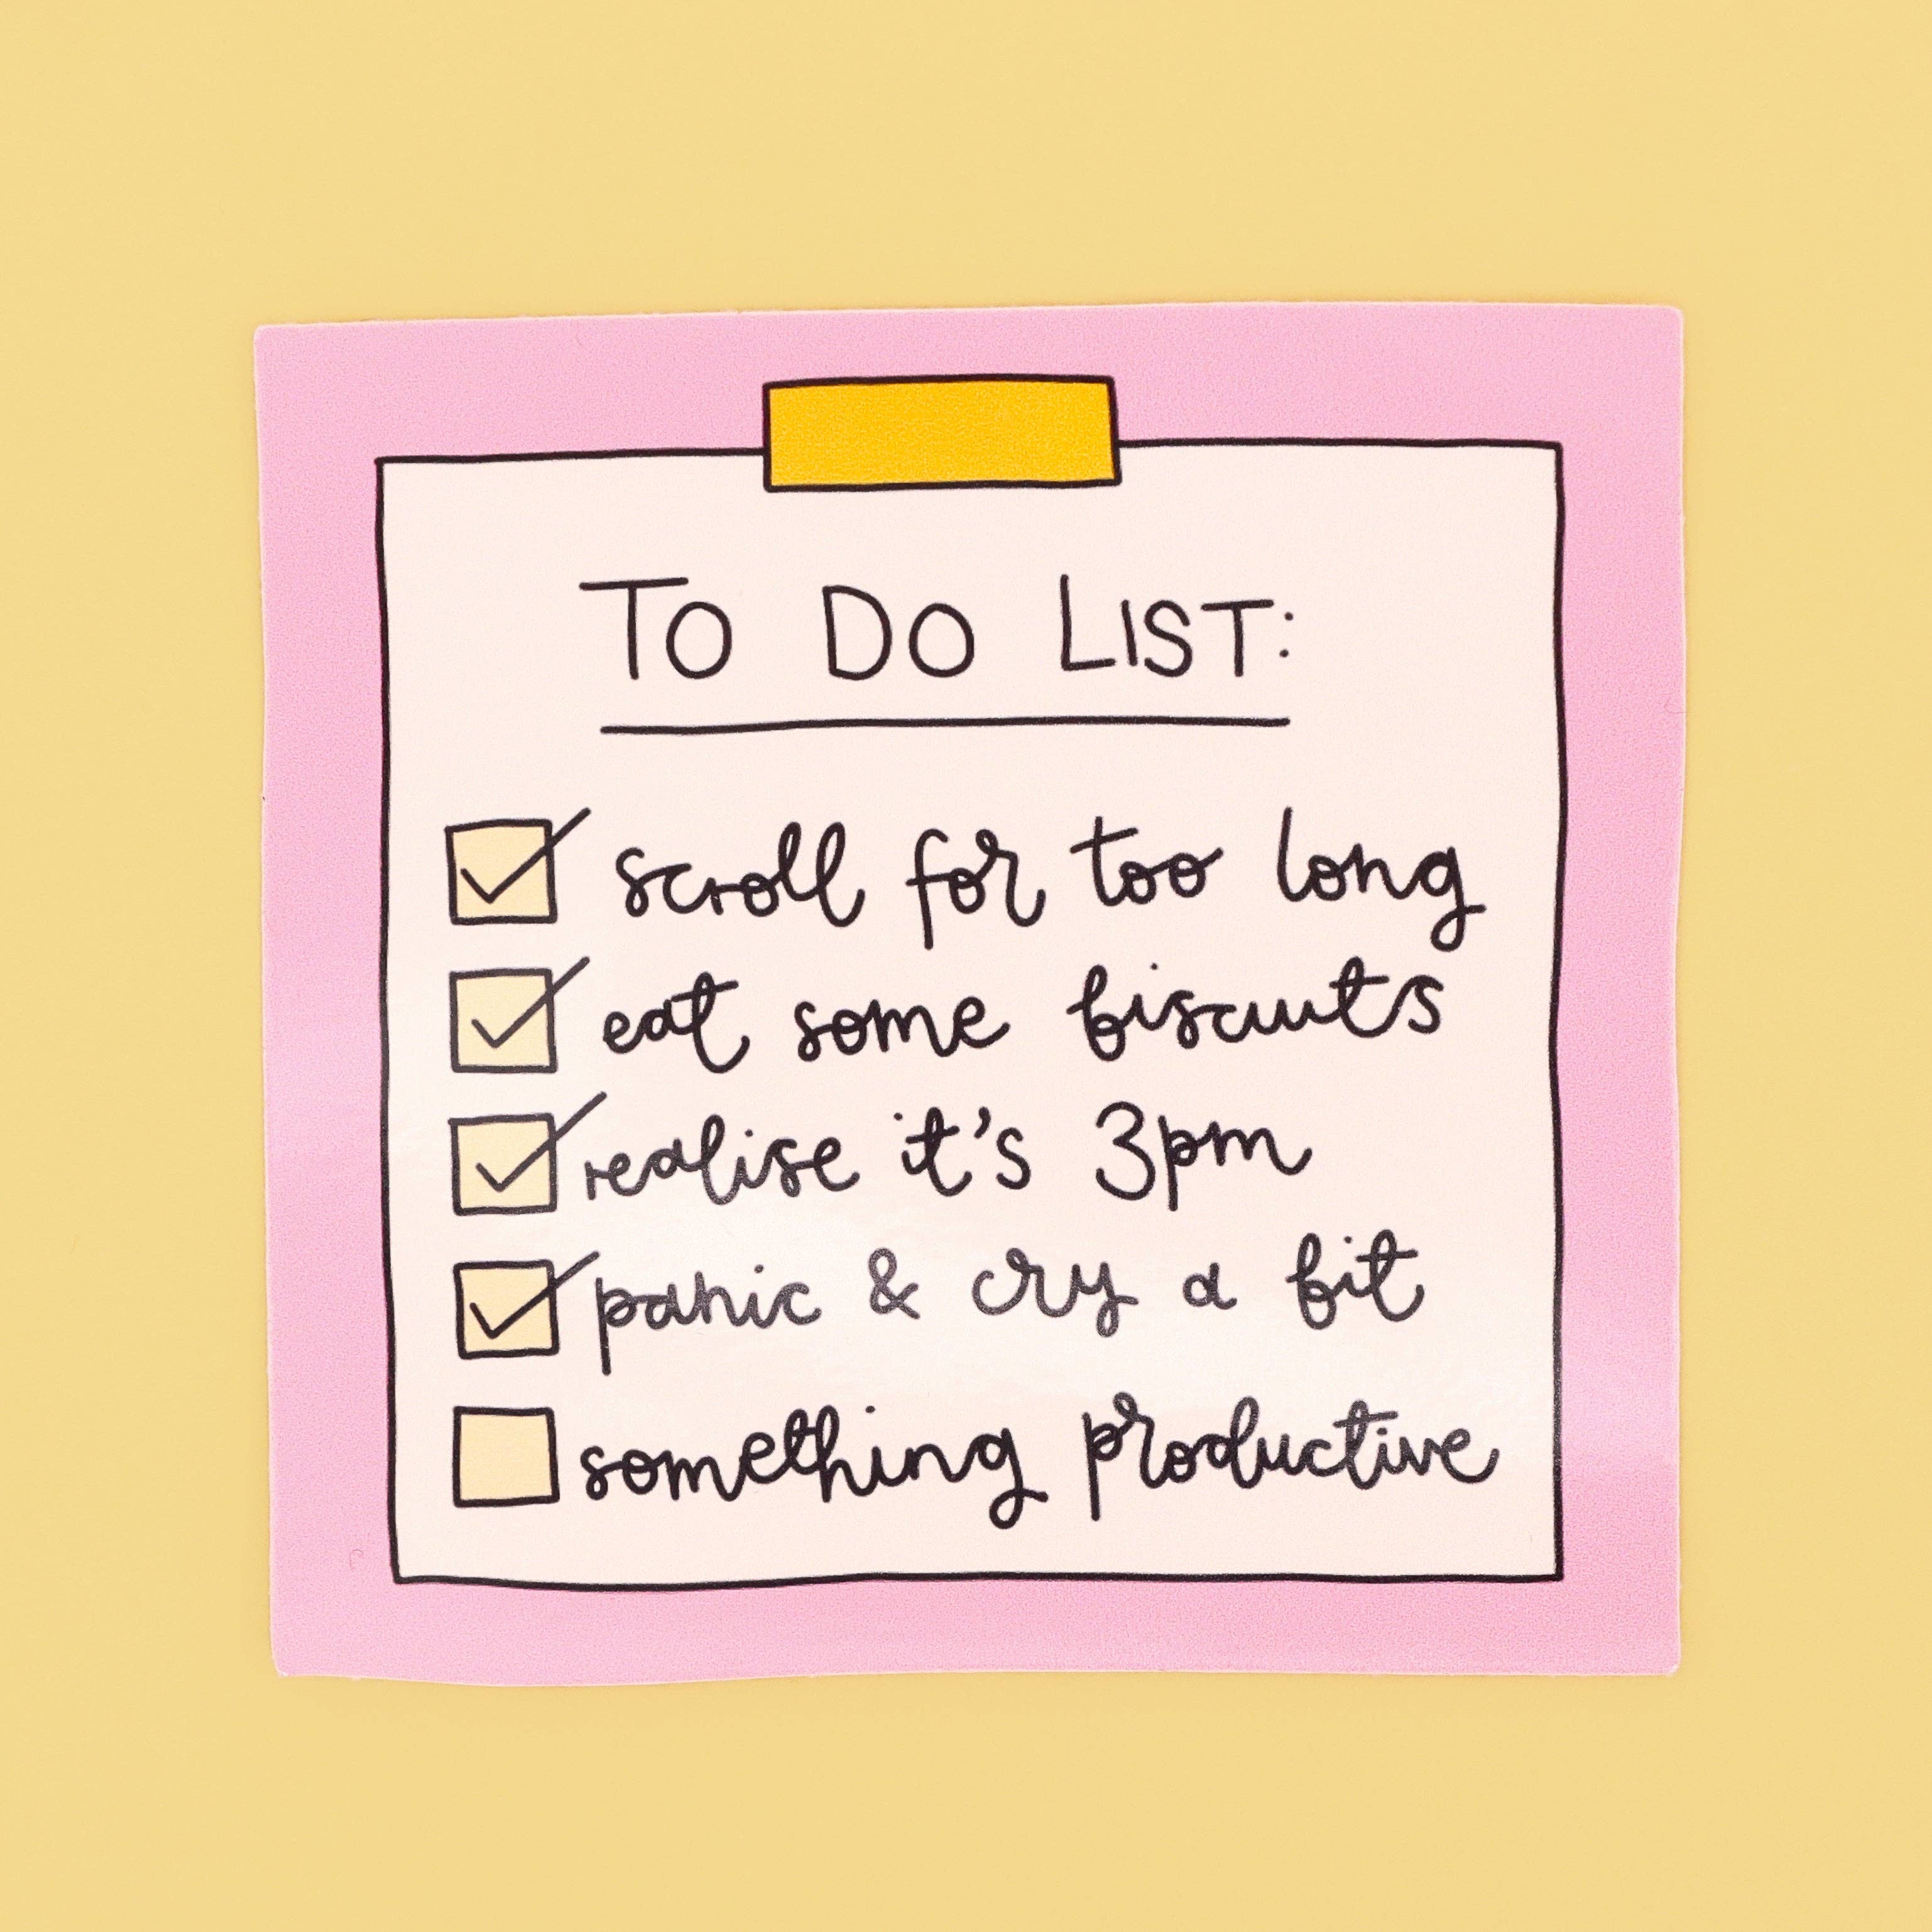 TO DO LIST:
scroll for too long
eat some biscuits
realise it's 3pm
panic & cry a bit
something productive